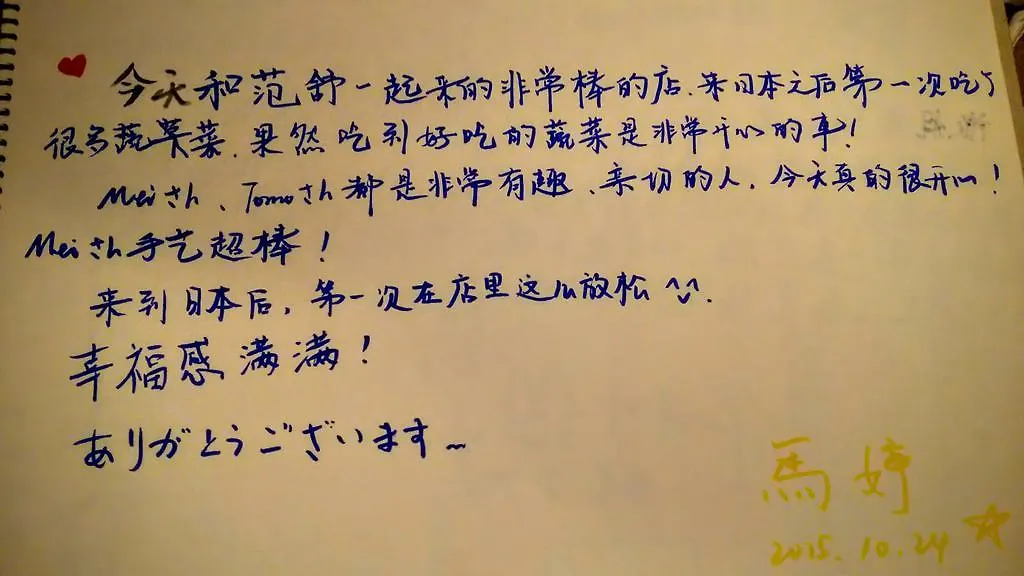 今天和范舒一起来的非常棒的店、来日本之后第一次吃了
很多蔬菜、果然吃到好吃的蔬菜是非常开心的事！
Meiさん、Tomoさん都是非常有趣、亲切的人、今天真的很开心！
Meiさん手艺超棒！
来到日本后，第一次在店里这么放松^_^.
幸福感满满！
ありがとうございます~
馬婷
2015.10.24